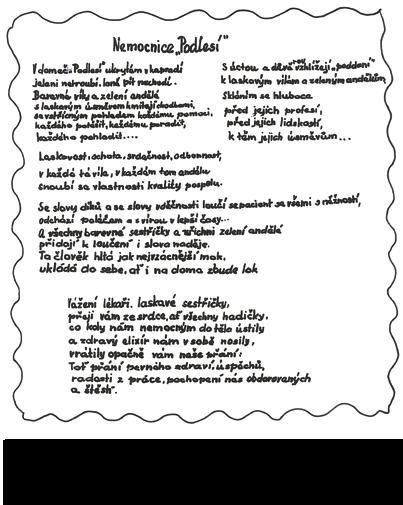 Nemocnice „Podlesí“
V domečku Podlesí ukrytém v kapradí
jeleni netroubí. laně pít nechodí.
Barevné víly a zelení andělé
s laskavým úsměvem kmitají chodbami,
se vstřícným pohledem každému pomoci,
každého potěšit, každému poradit,
každého pohladit....
S úctou a důvěrou vzhlížejí „poddaní“
k laskavým vílám a zeleným andělům,
Skláním se hluboce
před jejich profesí,
před jejich lidskostí,
k těm jejich úsměvům...
Laskavost, ochota, srdečnost, odbornost,
v každé té víle, v každém tom andělu
snoubí se vlastnosti kvality pospolu.
Se slovy díků a se slovy vděčnosti loučí se pacient se všemi s něžností,
odchází potěšen a s vírou v lepší časy...
A všechny barevné sestřičky a všichni zelení andělé
přidají k loučení i slova naděje.
Ta člověk hltá jak nejvzácnější mok,
ukládá do sebe, ať i na doma zbude lok
Vážení lékaři, laskavé sestřičky,
přeji vám ze srdce, ať všechny hadičky,
co kdy nám nemocným do těla ústily
a zdravý elixír nám v sobě nosily,
vrátily opačně vám naše přání:
Toť přání pevného zdraví, úspěchů,
radosti z práce, pochopení nás obdarovaných
a štěstí.